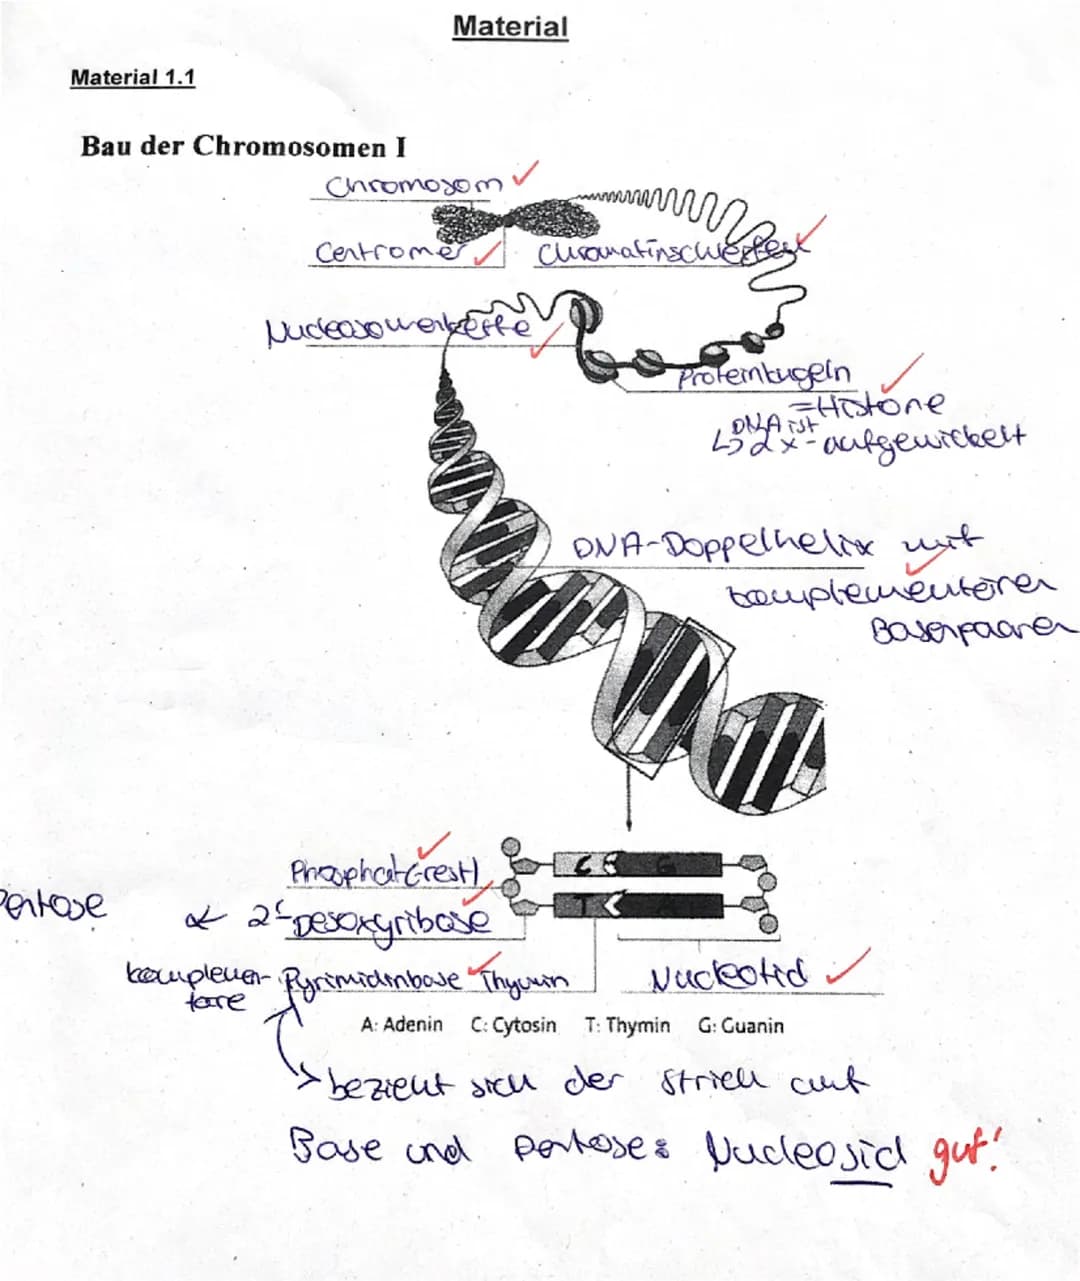 Material
Material 1.1
Bau der Chromosomen I
Chromosom
Centromer
Chromatinschleifen
Nucleosomenkette
Proteinkugeln
=Histone
DNA ist
↳ 2x-aufgewickelt
DNA-Doppelhelix mit
komplementären
Basenpaaren
C G
Phosphat(-rest)
T A
Pentose
2'-Desoxyribose
komplemen-
täre
Pyrimidinbase Thymin
Nucleotid
A: Adenin C: Cytosin T: Thymin G: Guanin
bezieht sich der Strich auf
Base und Pentose: Nucleosid gut!